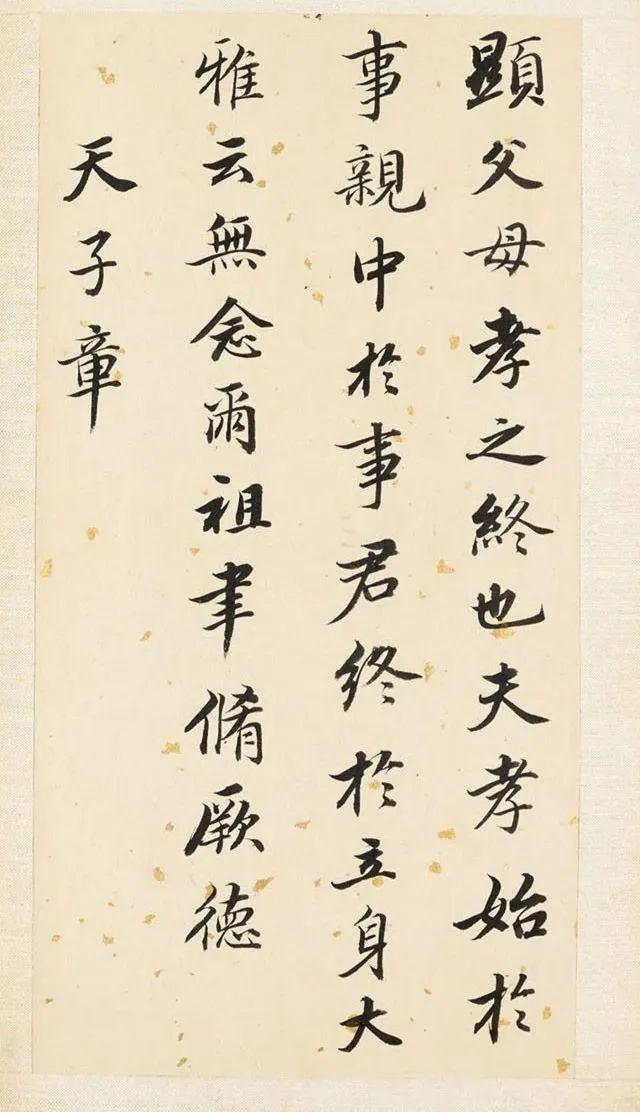 顯父母孝之終也夫孝始於
事親中於事君終於立身大
雅云無念爾祖聿脩厥德
天子章